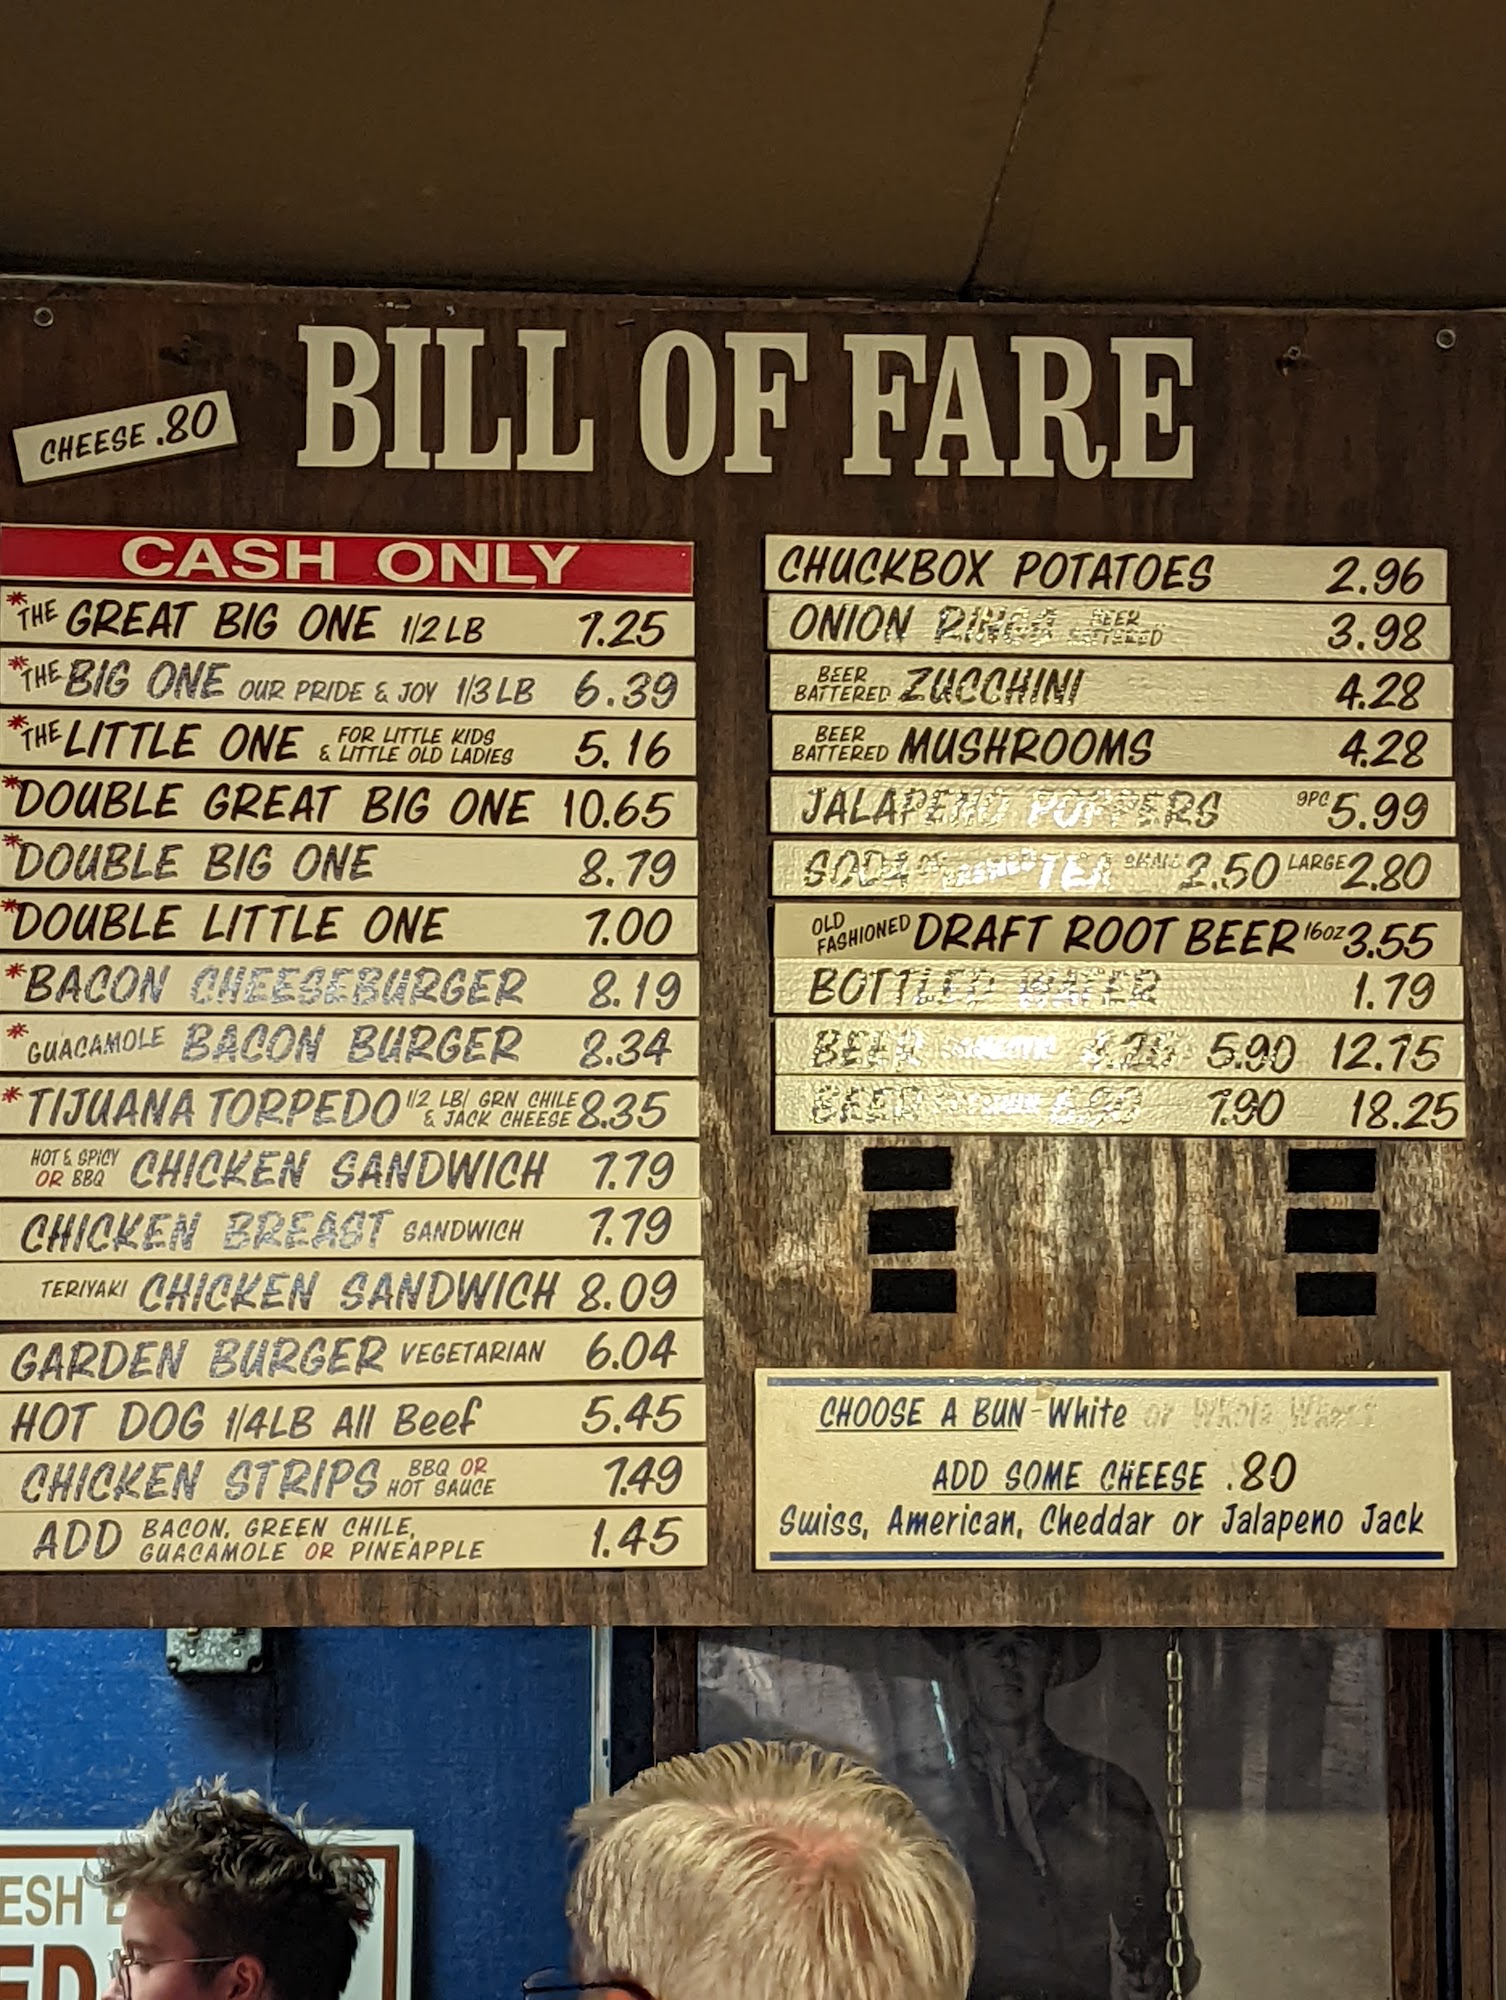 BILL OF FARE
CHEESE .80
CASH ONLY
*THE GREAT BIG ONE 1/2 LB 7.25
*THE BIG ONE OUR PRIDE & JOY 1/3 LB 6.39
*THE LITTLE ONE FOR LITTLE KIDS & LITTLE OLD LADIES 5.16
*DOUBLE GREAT BIG ONE 10.65
*DOUBLE BIG ONE 8.79
*DOUBLE LITTLE ONE 7.00
*BACON CHEESEBURGER 8.19
*GUACAMOLE BACON BURGER 8.34
*TIJUANA TORPEDO 1/2 LB/ GRN CHILE & JACK CHEESE 8.35
HOT & SPICY OR BBQ CHICKEN SANDWICH 7.79
CHICKEN BREAST SANDWICH 7.79
TERIYAKI CHICKEN SANDWICH 8.09
GARDEN BURGER VEGETARIAN 6.04
HOT DOG 1/4LB All Beef 5.45
CHICKEN STRIPS BBQ OR HOT SAUCE 7.49
ADD BACON, GREEN CHILE, GUACAMOLE OR PINEAPPLE 1.45
CHUCKBOX POTATOES 2.96
ONION RINGS BEER BATTERED 3.98
BEER BATTERED ZUCCHINI 4.28
BEER BATTERED MUSHROOMS 4.28
JALAPENO POPPERS 9PC 5.99
SODA TEA SMALL 2.50 LARGE 2.80
OLD FASHIONED DRAFT ROOT BEER 16oz 3.55
BOTTLED WATER 1.79
BEER 5.90 12.75
BEER 7.90 18.25
CHOOSE A BUN - White or Whole Wheat
ADD SOME CHEESE .80
Swiss, American, Cheddar or Jalapeno Jack
ESH
ED